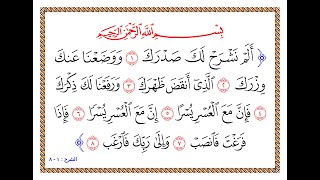 بِسْمِ ٱللَّهِ ٱلرَّحْمَٰنِ ٱلرَّحِيمِ
أَلَمْ نَشْرَحْ لَكَ صَدْرَكَ ١ وَوَضَعْنَا عَنكَ
وِزْرَكَ ٢ ٱلَّذِىٓ أَنقَضَ ظَهْرَكَ ٣ وَرَفَعْنَا لَكَ ذِكْرَكَ
٤ فَإِنَّ مَعَ ٱلْعُسْرِ يُسْرًا ٥ إِنَّ مَعَ ٱلْعُسْرِ يُسْرًا ٦ فَإِذَا
فَرَغْتَ فَٱنصَبْ ٧ وَإِلَىٰ رَبِّكَ فَٱرْغَب ٨
الشرح : ١-٨